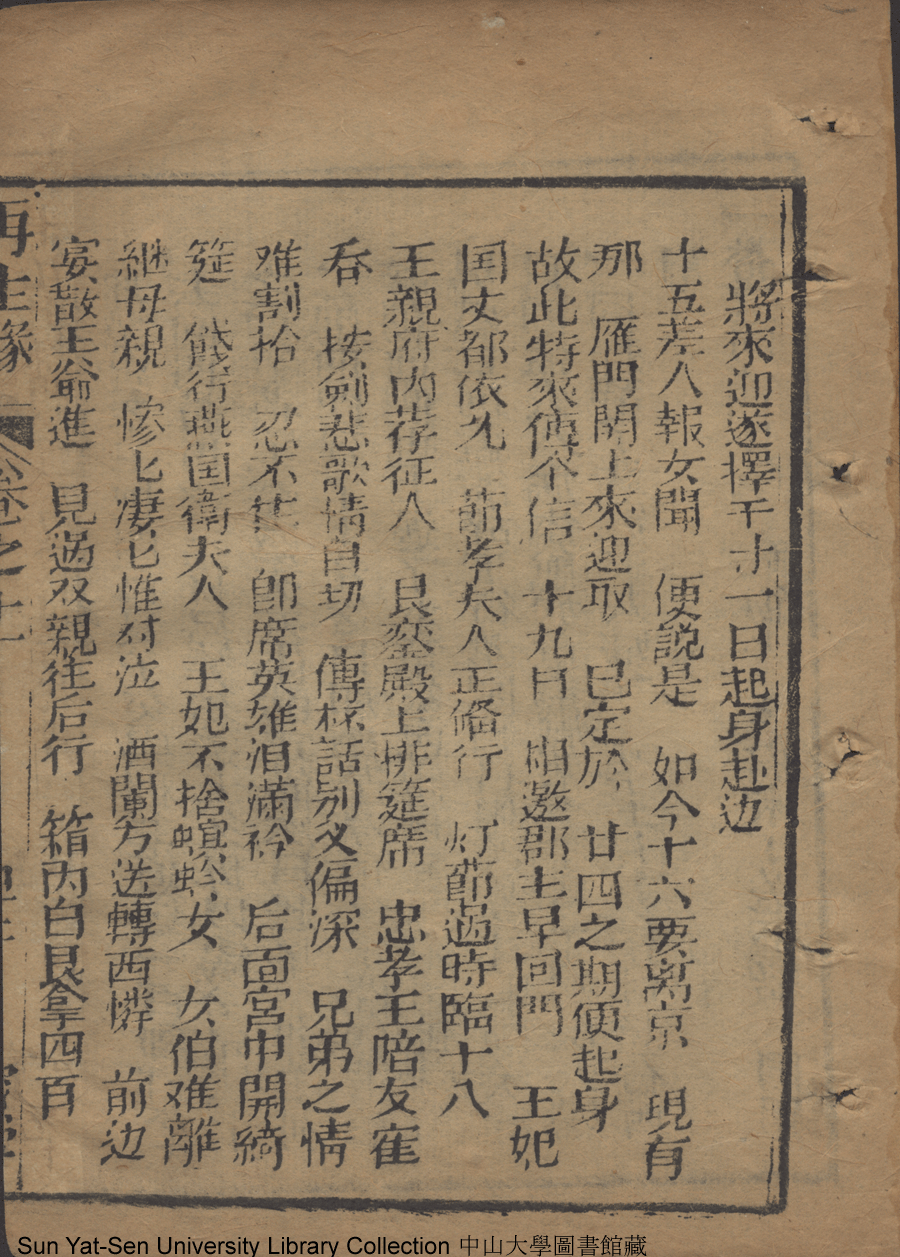 將來迎遂擇于廿一日起身赴边
十五差人報女聞　便説是　如今十六要离京　現有
那　雁門関上來迎取　已定於　廿四之期便起身
故此特來傳个信　十九日　相邀郡主早回門　王妃
国丈都依允　節孝夫人正俻行　灯節過時臨十八
王親府内荐征人　艮銮殿上排筵席　忠孝王陪友崔
吞　按劍悲歌情自切　傳杯話别义偏深　兄弟之情
难割捨　忍不住　卽席英雄泪满衿　后面宮中開綺
筵　餞行燕国衛夫人　王妃不捨螟蛉女　女伯难離
継母親　惨匕凄匕惟对泣　酒闌方送轉西憐　前边
宴散王爺進　見過双親往后行　箱内白艮拿四百
再生縁　卷之十
Sun Yat-Sen University Library Collection 中山大學圖書館藏